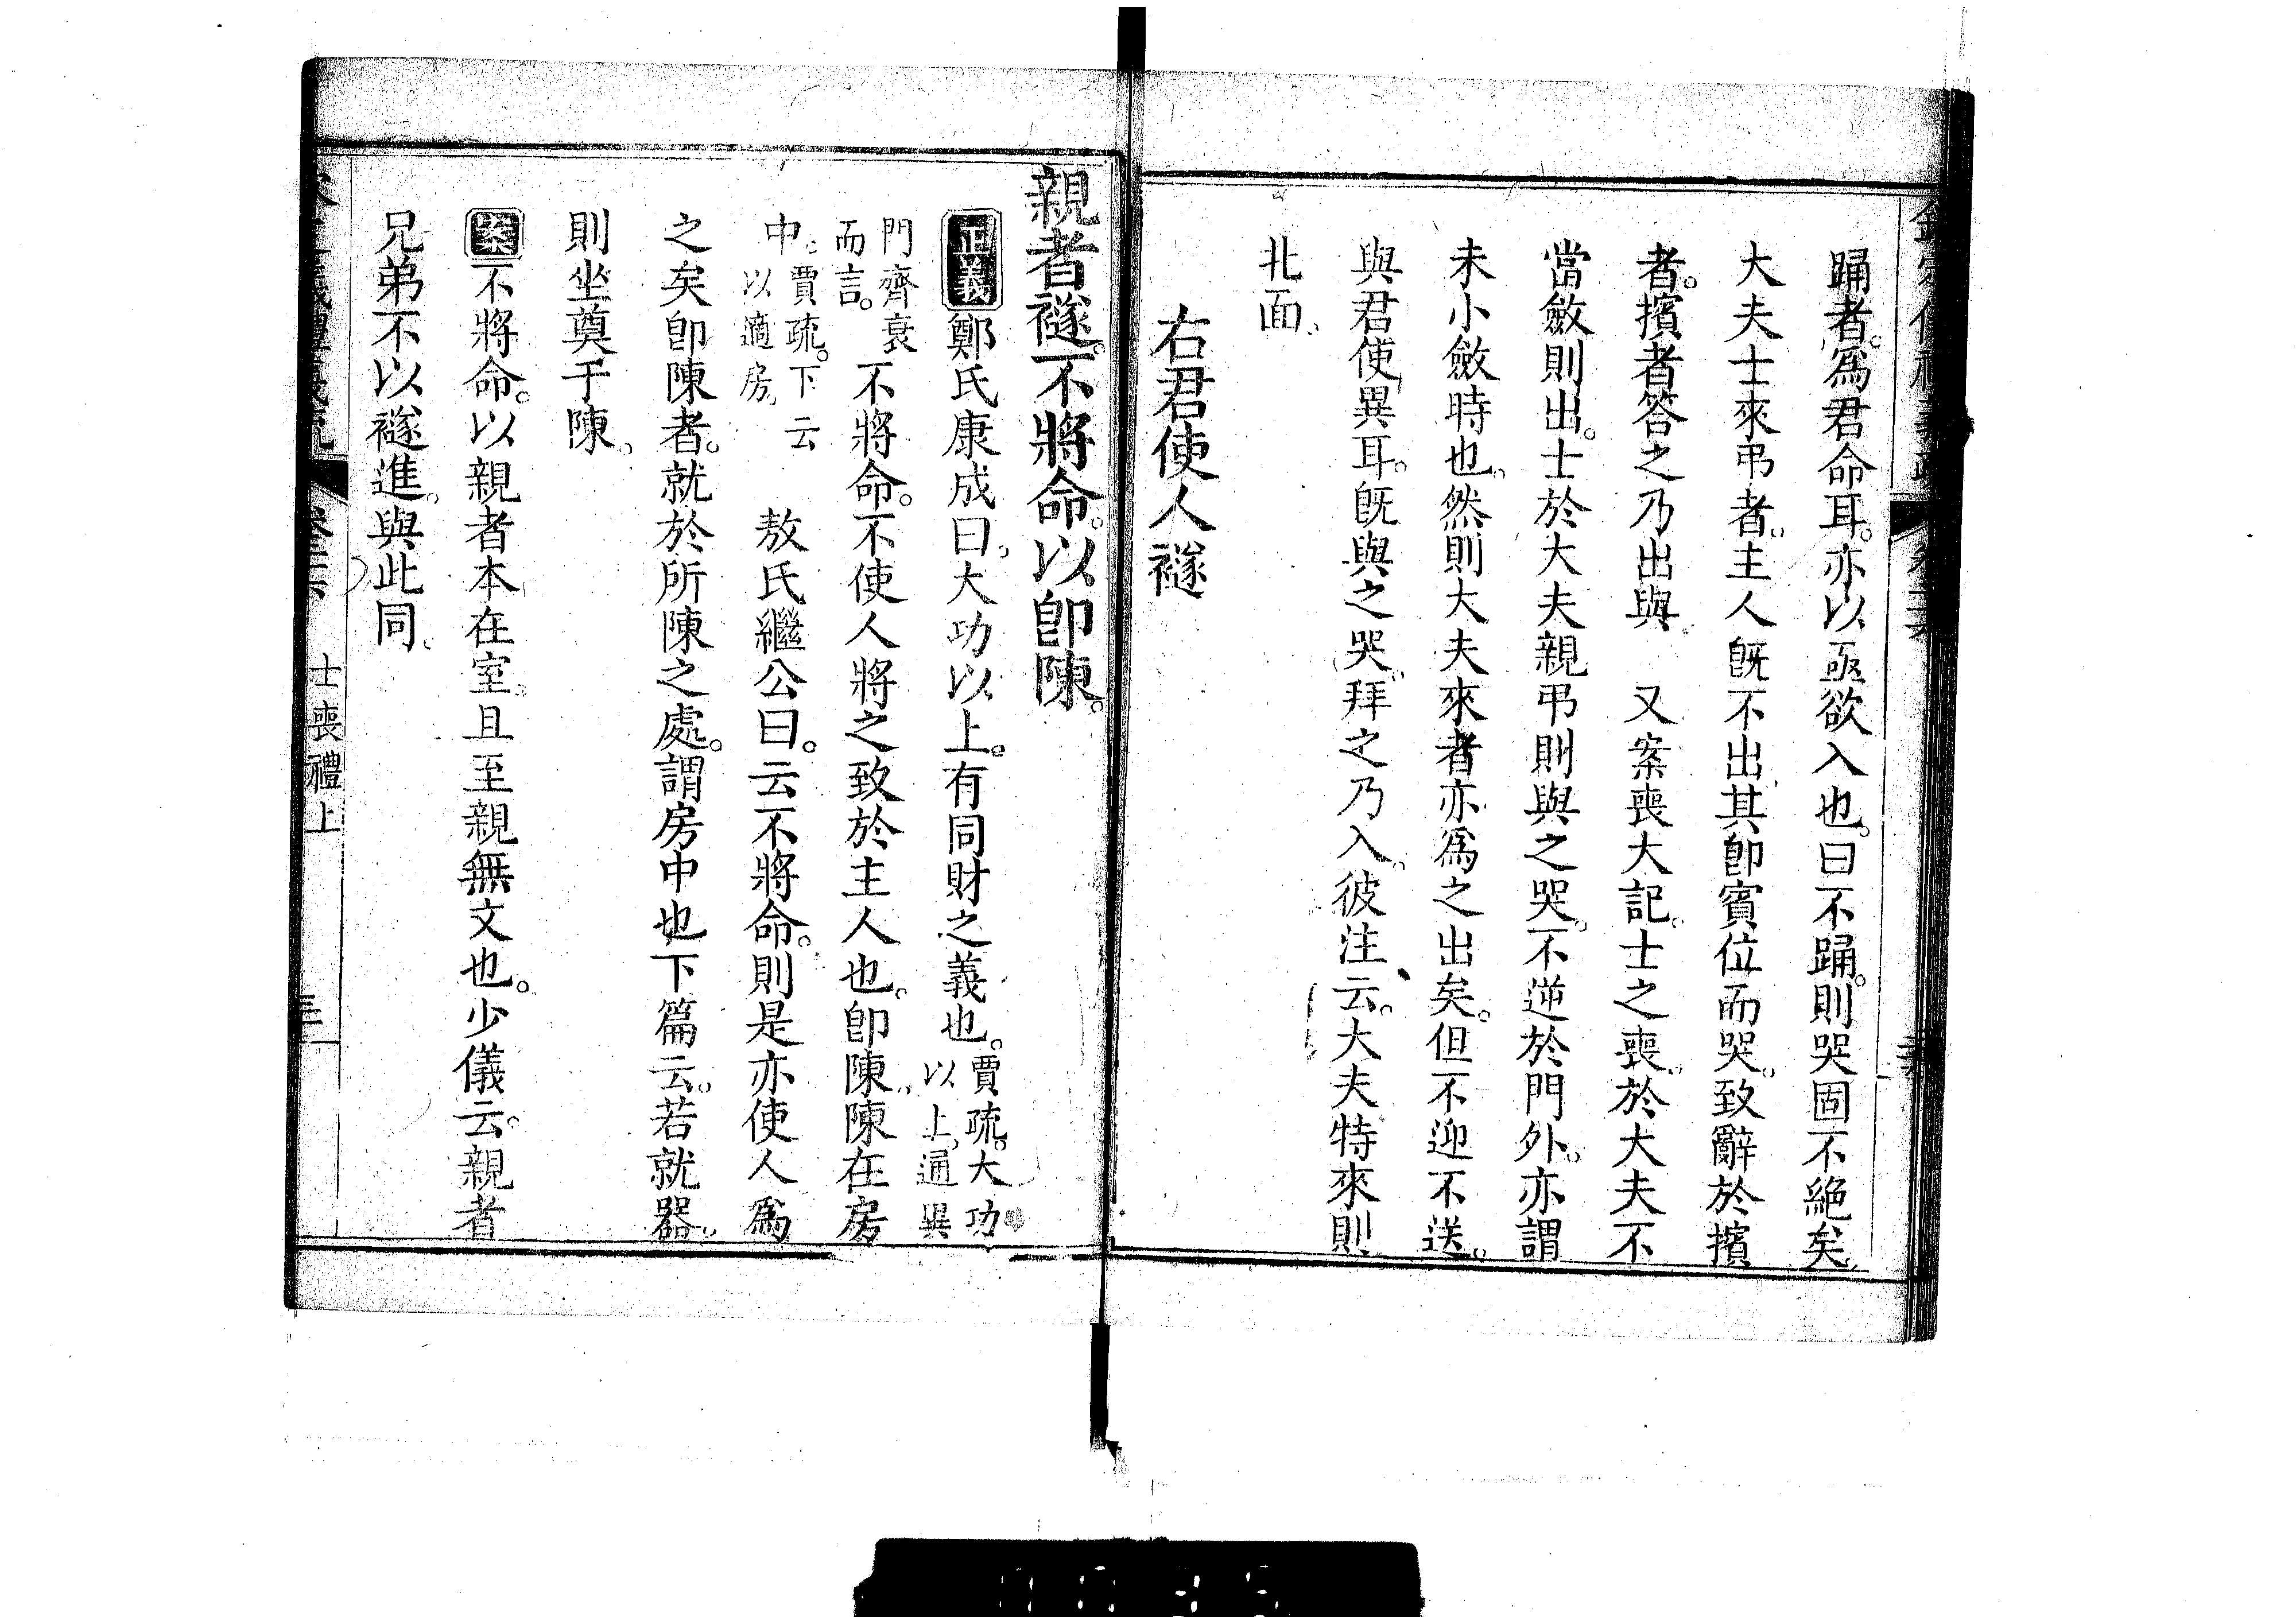 踊者。爲君命耳。亦以亟欲入也。曰不踊。則哭固不絶矣。
大夫士來弔者。主人旣不出其卽賓位而哭。致辭於擯
者。擯者答之乃出與。　又案喪大記。士之喪。於大夫不
當斂則出。士於大夫親弔則與之哭。不逆於門外。亦謂
未小斂時也。然則大夫來者亦爲之出矣。但不迎不送。
與君使異耳。旣與之哭。拜之乃入。彼注云。大夫特來則
北面。
右君使人襚
親者襚。不將命。以卽陳。
正義鄭氏康成曰。大功以上。有同財之義也。賈疏。大功以上。通異
門齊衰而言。不將命。不使人將之致於主人也。卽陳。陳在房
中。賈疏。下云以適房。　敖氏繼公曰。云不將命。則是亦使人爲
之矣卽陳者。就於所陳之處。謂房中也下篇云。若就器。
則坐奠于陳。
案不將命。以親者本在室。且至親無文也。少儀云。親者
兄弟不以襚進。與此同。
士喪禮上